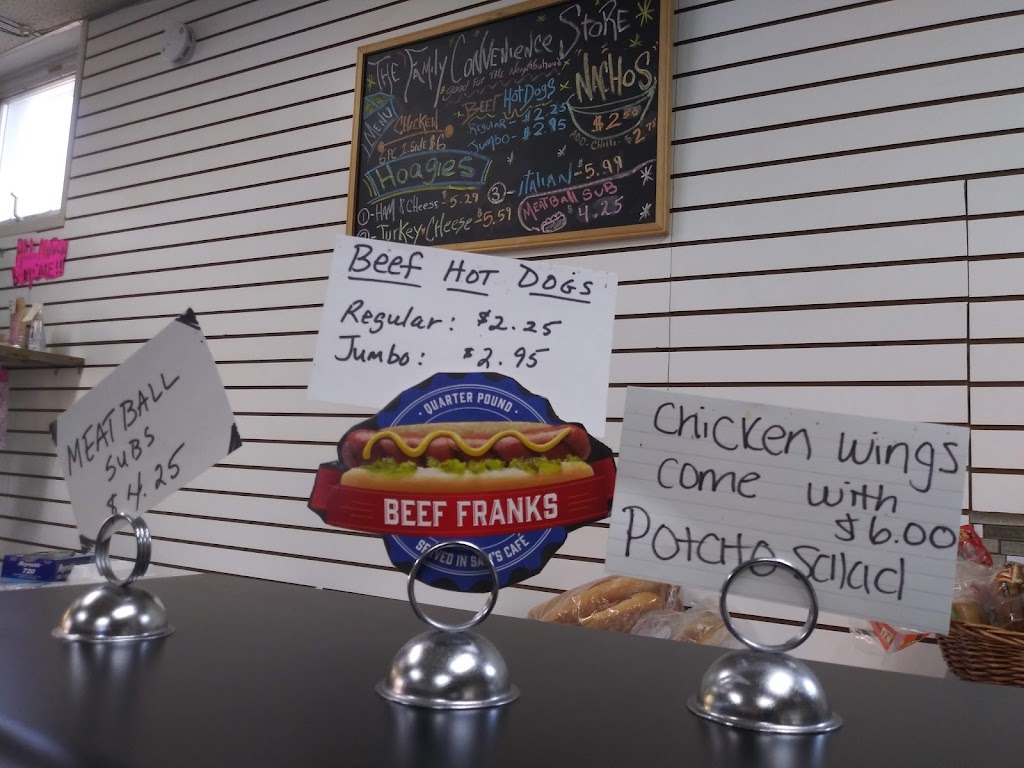 THE Family CONVENIENCE STORE
GOOD FOR THE Neighborhood
MENU
CHICKEN
6PC 2 SIDE $6
BEEF HOT DOGS
Regular - $2.25
Jumbo - $2.95
NACHOS
$2.50
Hoagies
1 - HAM & CHeese - $5.29
Turkey & CHeese - $5.59
3 - ITALIAN - $5.99
MEATBALL SUB
$4.25
Beef HOT DOGS
Regular: $2.25
Jumbo: $2.95
MEATBALL
SUBS
$4.25
QUARTER POUND
BEEF FRANKS
SERVED IN SAM'S CAFÉ
chicken wings
come with
$6.00
Potato salad